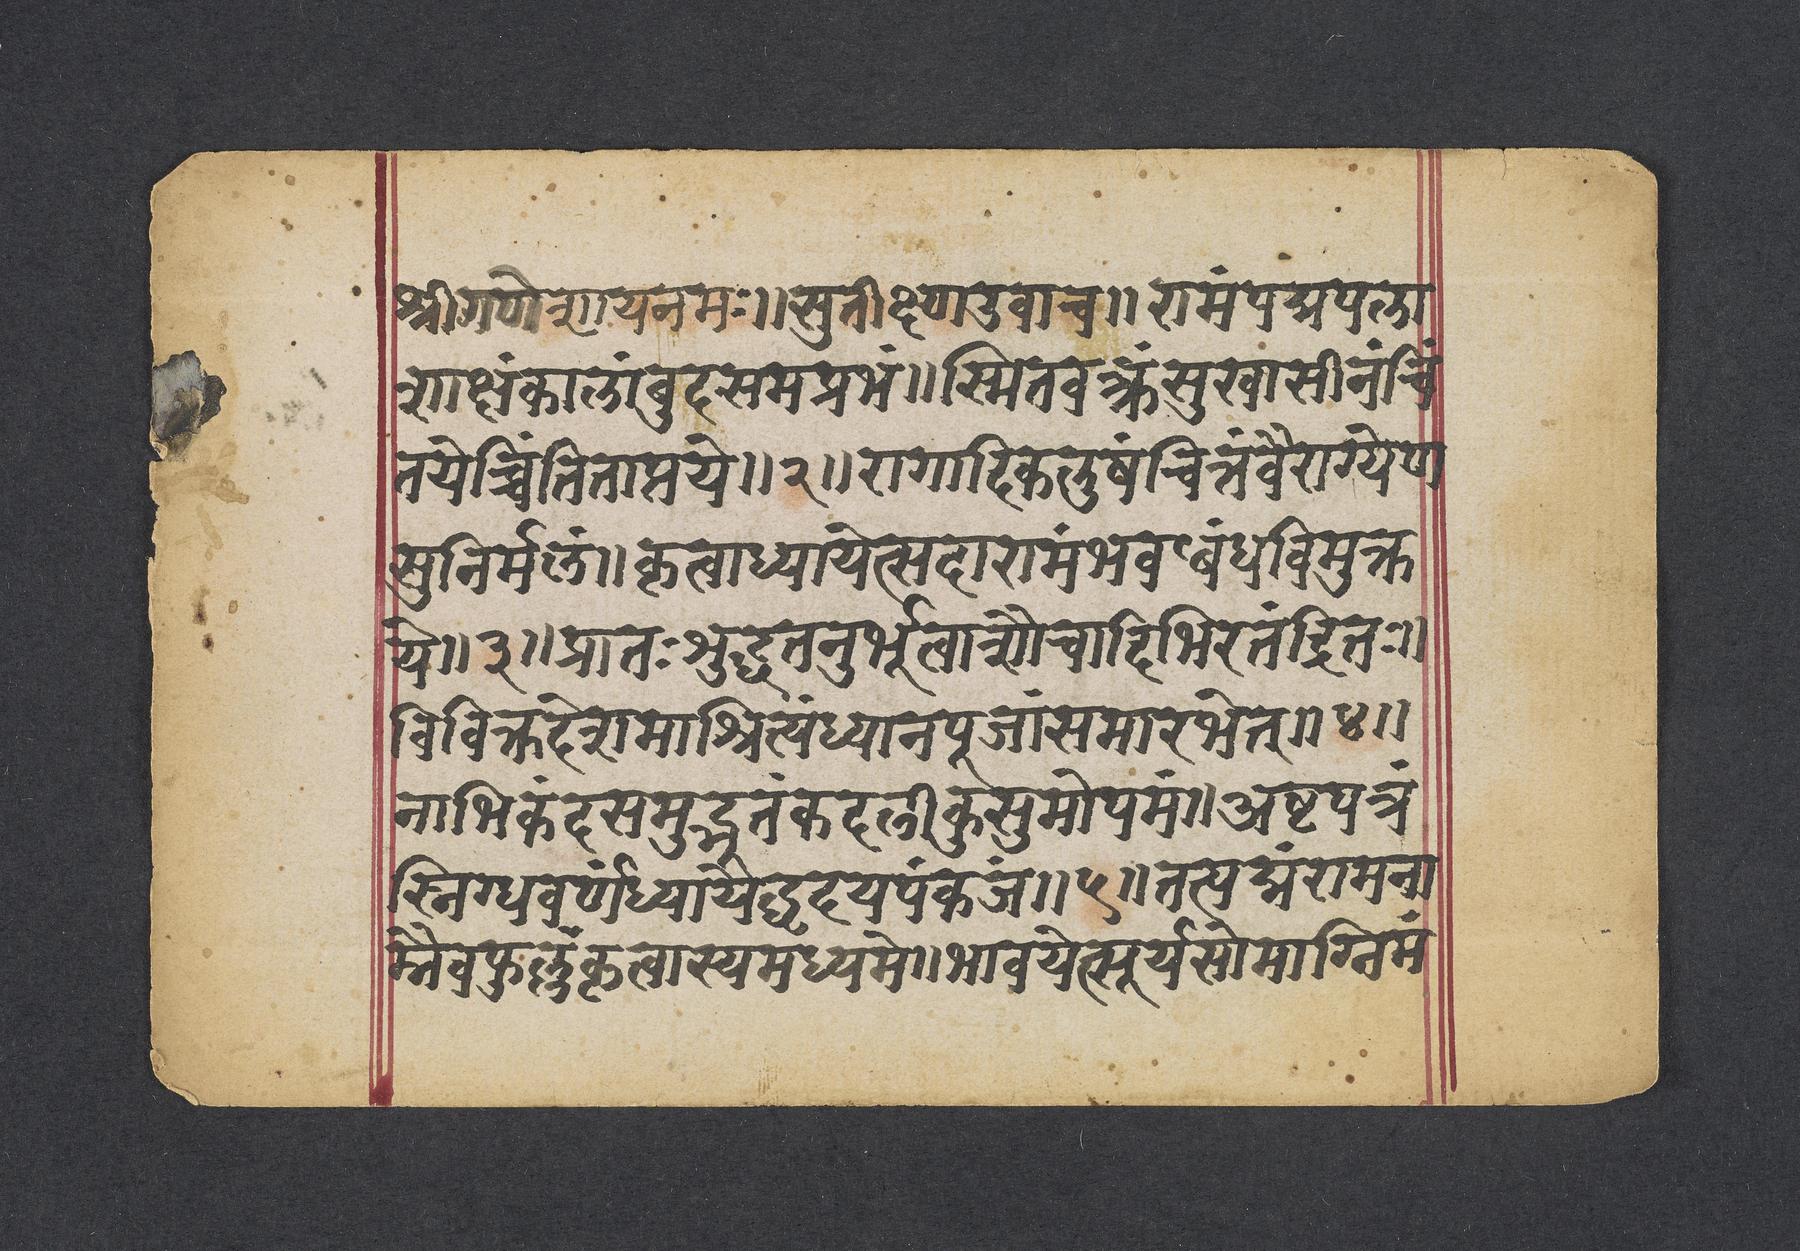 श्रीगणेशायनमः॥सुतीक्ष्णउवाच॥रामंपद्मपला
शाक्षंकालांबुदसमप्रभं॥स्मितवक्त्रंसुखासीनंचिं
तयेच्चिंतिताप्तये॥२॥रागादिकलुषंचित्तंवैराग्येण
सुनिर्मलं॥कृत्वाध्यायेत्सदारामंभवबंधविमुक्त
ये॥३॥प्रातःशुद्धतनुर्भूत्वाशौचादिभिरतंद्रितः॥
विविक्तदेशमाश्रित्यंध्यानपूजांसमारभेत्॥४॥
नाभिकंदसमुद्भूतंकदलीकुसुमोपमं॥अष्टपत्रं
स्निग्धवर्णंध्यायेद्धृदयपंकजं॥५॥तत्पद्मंरामना
म्नैवफुल्लंकृत्वास्यमध्यमे॥भावयेत्सूर्यसोमाग्निमं